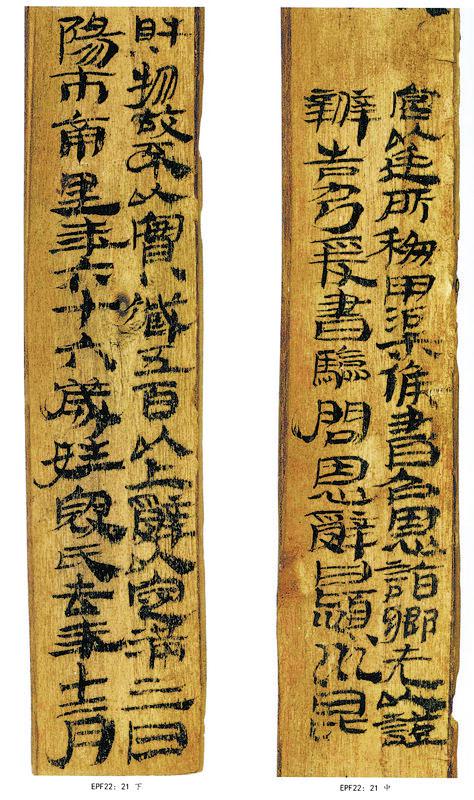 宮以廷所移甲渠候書召恩詣鄉先以證
辨告乃爰書驗問恩辭曰潁川昆
EPF22: 21 中
財物故不以實臧五百以上辭以定滿三日
陽市南里年六十六歲姓寇氏去年十二月
EPF22: 21 下